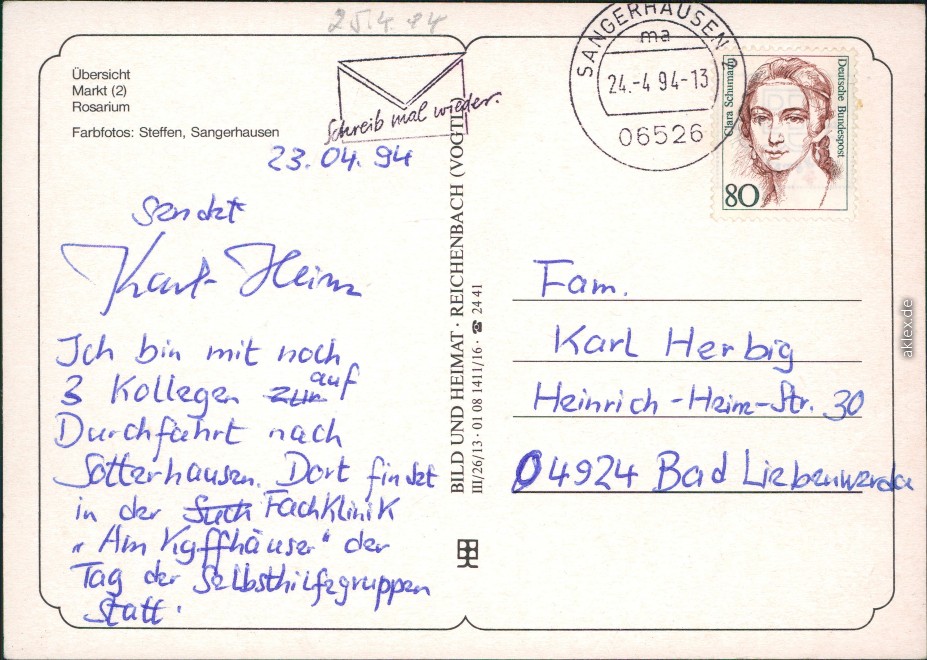 25.4.94
Übersicht
Markt (2)
Rosarium
Farbfotos: Steffen, Sangerhausen
Schreib mal wieder.
SANGERHAUSEN 2
ma
24.-4 94-13
06526
Clara Schumann
Deutsche Bundespost
80
23.04.94
Sendet
Karl-Heinz
Ich bin mit noch
3 Kollegen zur auf
Durchfahrt nach
Sotterhausen. Dort findet
in der Such Fachklinik
„Am Kyffhäuser" der
Tag der Selbsthilfegruppen
statt.
BILD UND HEIMAT · REICHENBACH (VOGTL
III/26/13 · 01 08 1411/16 · ☎ 24 41
Fam.
Karl Herbig
Heinrich-Heim-Str. 30
04924 Bad Liebenwerda
aklex.de